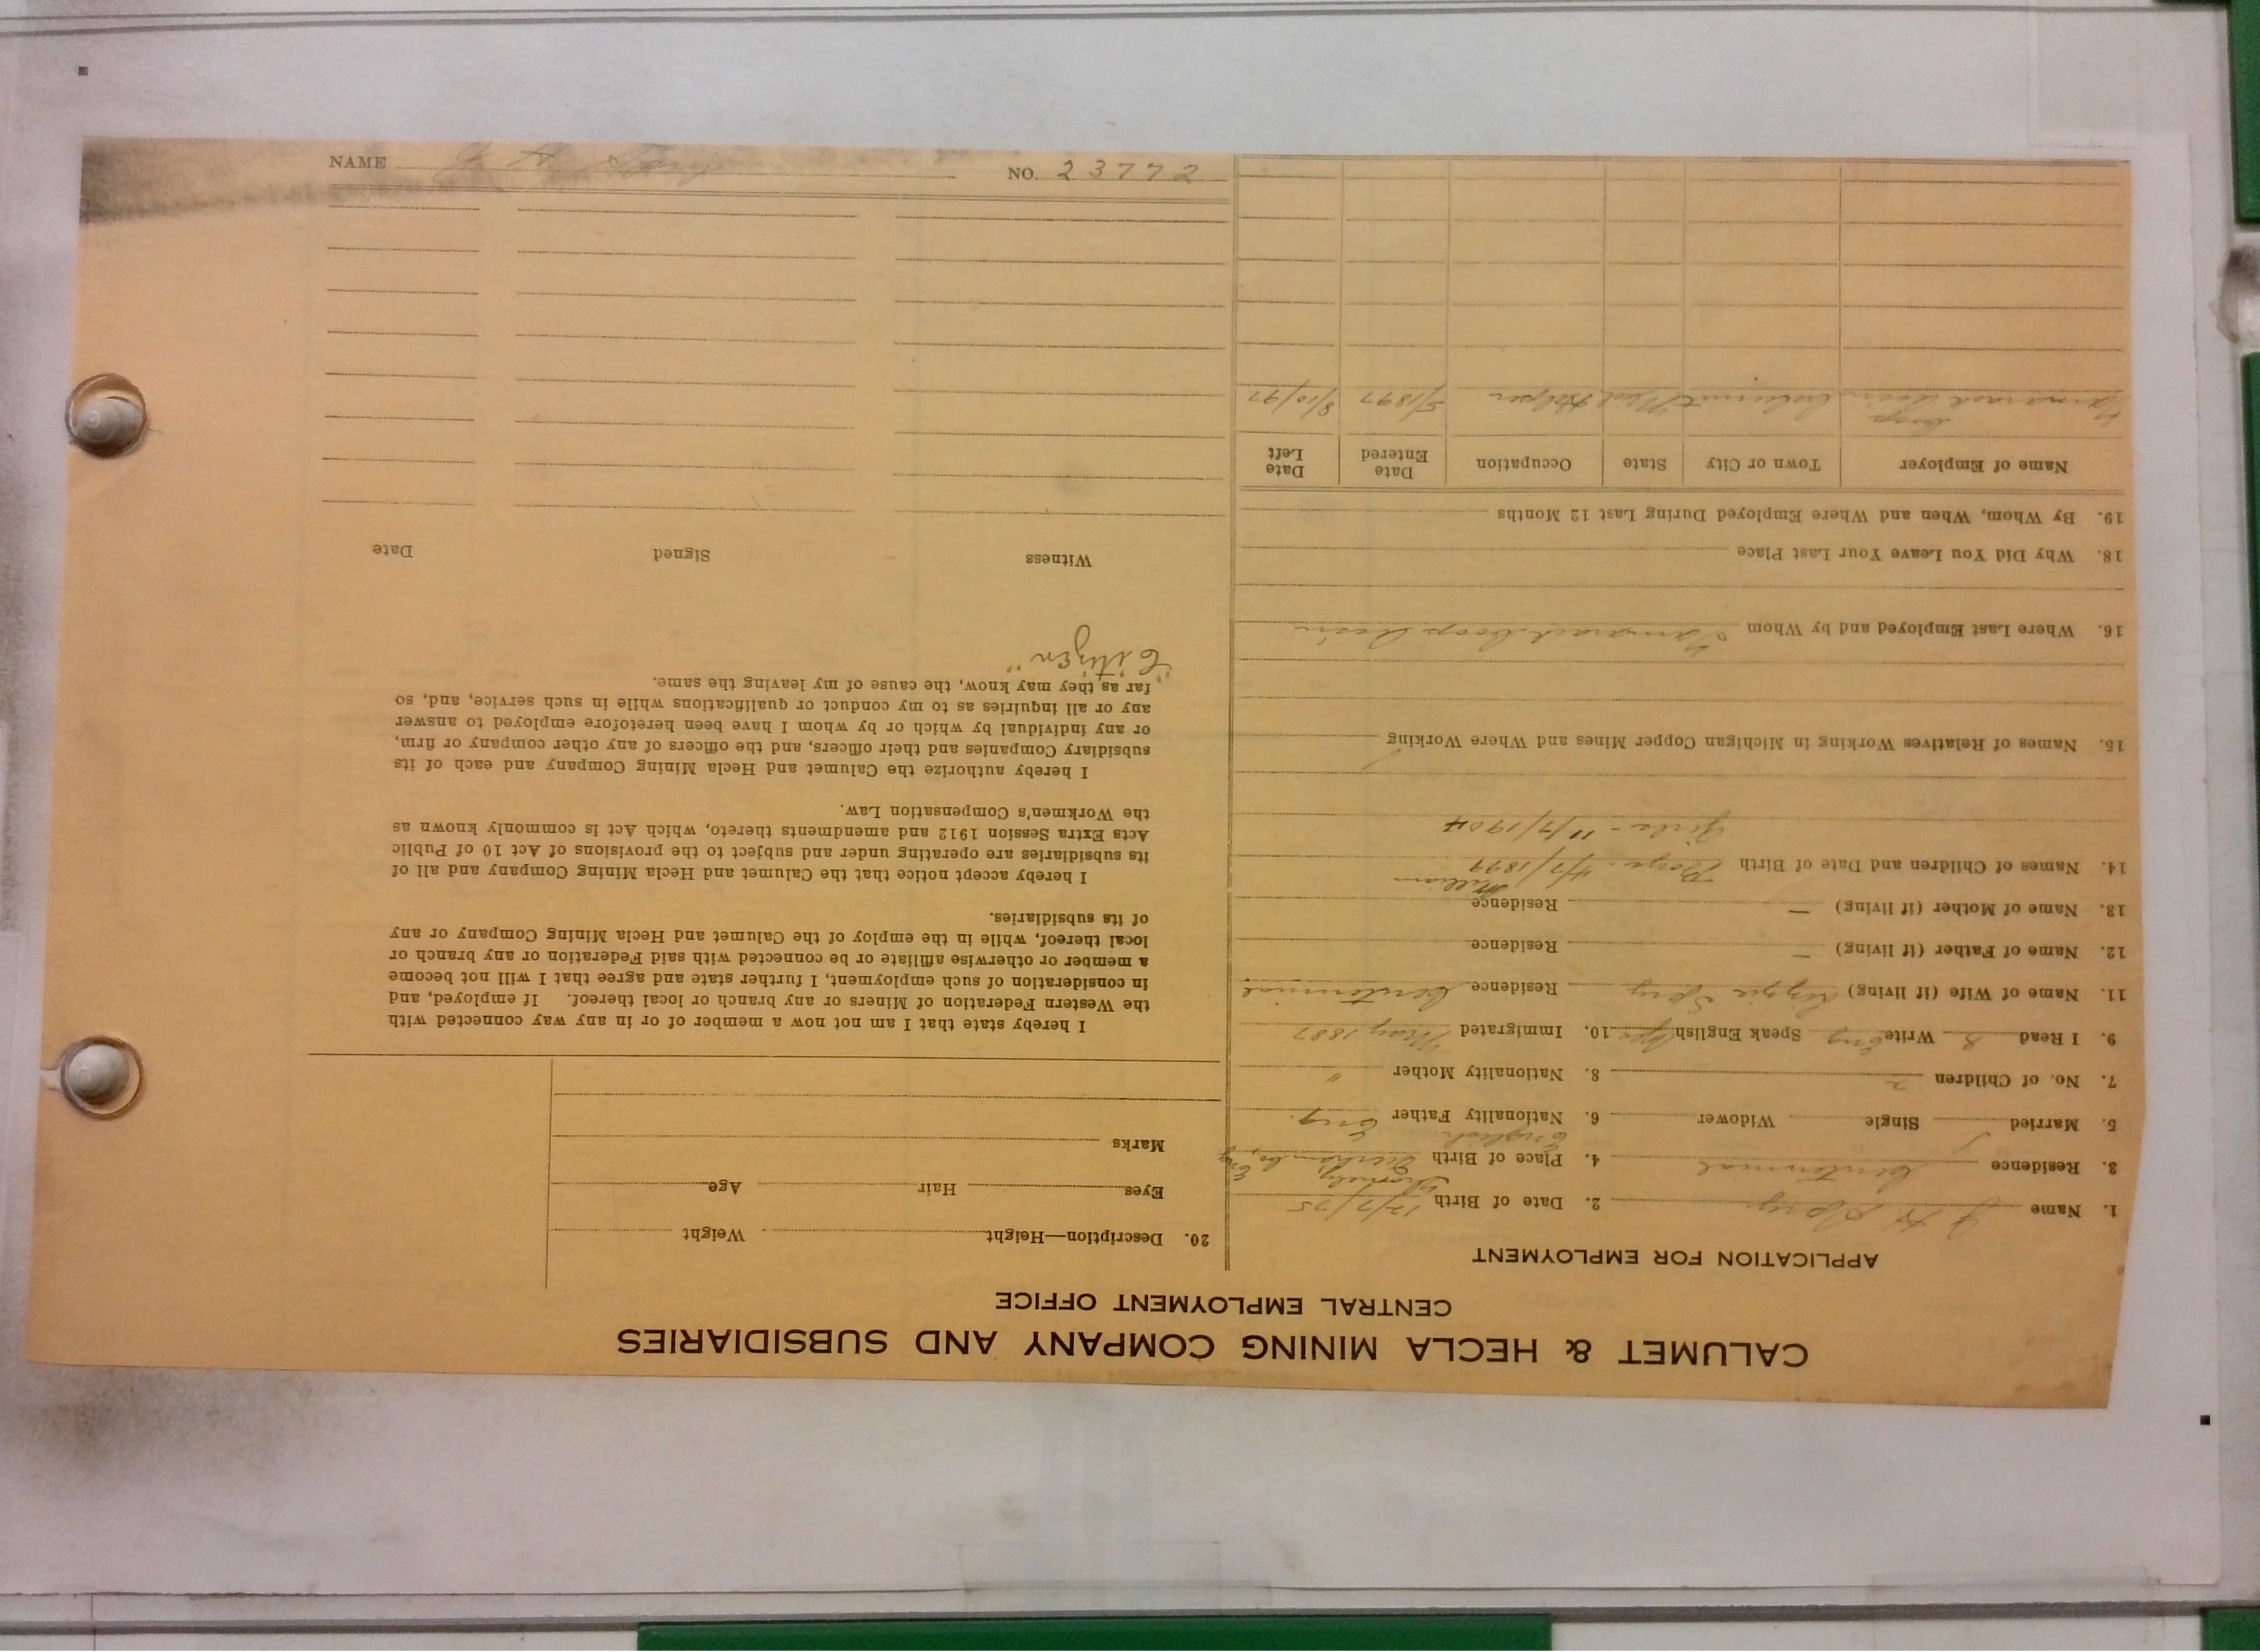 CALUMET & HECLA MINING COMPANY AND SUBSIDIARIES
CENTRAL EMPLOYMENT OFFICE
APPLICATION FOR EMPLOYMENT
1. Name J H Spry 2. Date of Birth 12/7/75
3. Residence Centennial 4. Place of Birth Durham Co, Eng
English
5. Married Single Widower 6. Nationality Father Eng.
7. No. of Children 2 8. Nationality Mother "
9. I Read & Write Eng Speak English yes 10. Immigrated May 1887
11. Name of Wife (if living) Lizzie Spry Residence Centennial
12. Name of Father (if living) — Residence
13. Name of Mother (if living) — Residence
William
14. Names of Children and Date of Birth Boys - 4/7/1899
Girls - 11/7/1904
15. Names of Relatives Working in Michigan Copper Mines and Where Working
16. Where Last Employed and by Whom Tamarack Coop Assn
18. Why Did You Leave Your Last Place
19. By Whom, When and Where Employed During Last 12 Months
Name of Employer Town or City State Occupation Date Entered Date Left
Tamarack Coop Assn Calumet Mich Helper 5/1897 8/10/97
20. Description—Height Weight
Eyes Hair Age
Marks
I hereby state that I am not now a member of or in any way connected with
the Western Federation of Miners or any branch or local thereof. If employed, and
in consideration of such employment, I further state and agree that I will not become
a member or otherwise affiliate or be connected with said Federation or any branch or
local thereof, while in the employ of the Calumet and Hecla Mining Company or any
of its subsidiaries.
I hereby accept notice that the Calumet and Hecla Mining Company and all of
its subsidiaries are operating under and subject to the provisions of Act 10 of Public
Acts Extra Session 1912 and amendments thereto, which Act is commonly known as
the Workmen's Compensation Law.
I hereby authorize the Calumet and Hecla Mining Company and each of its
subsidiary Companies and their officers, and the officers of any other company or firm,
or any individual by which or by whom I have been heretofore employed to answer
any or all inquiries as to my conduct or qualifications while in such service, and, so
far as they may know, the cause of my leaving the same.
"Citizen"
Witness Signed Date
NAME J. H. Spry NO. 23772